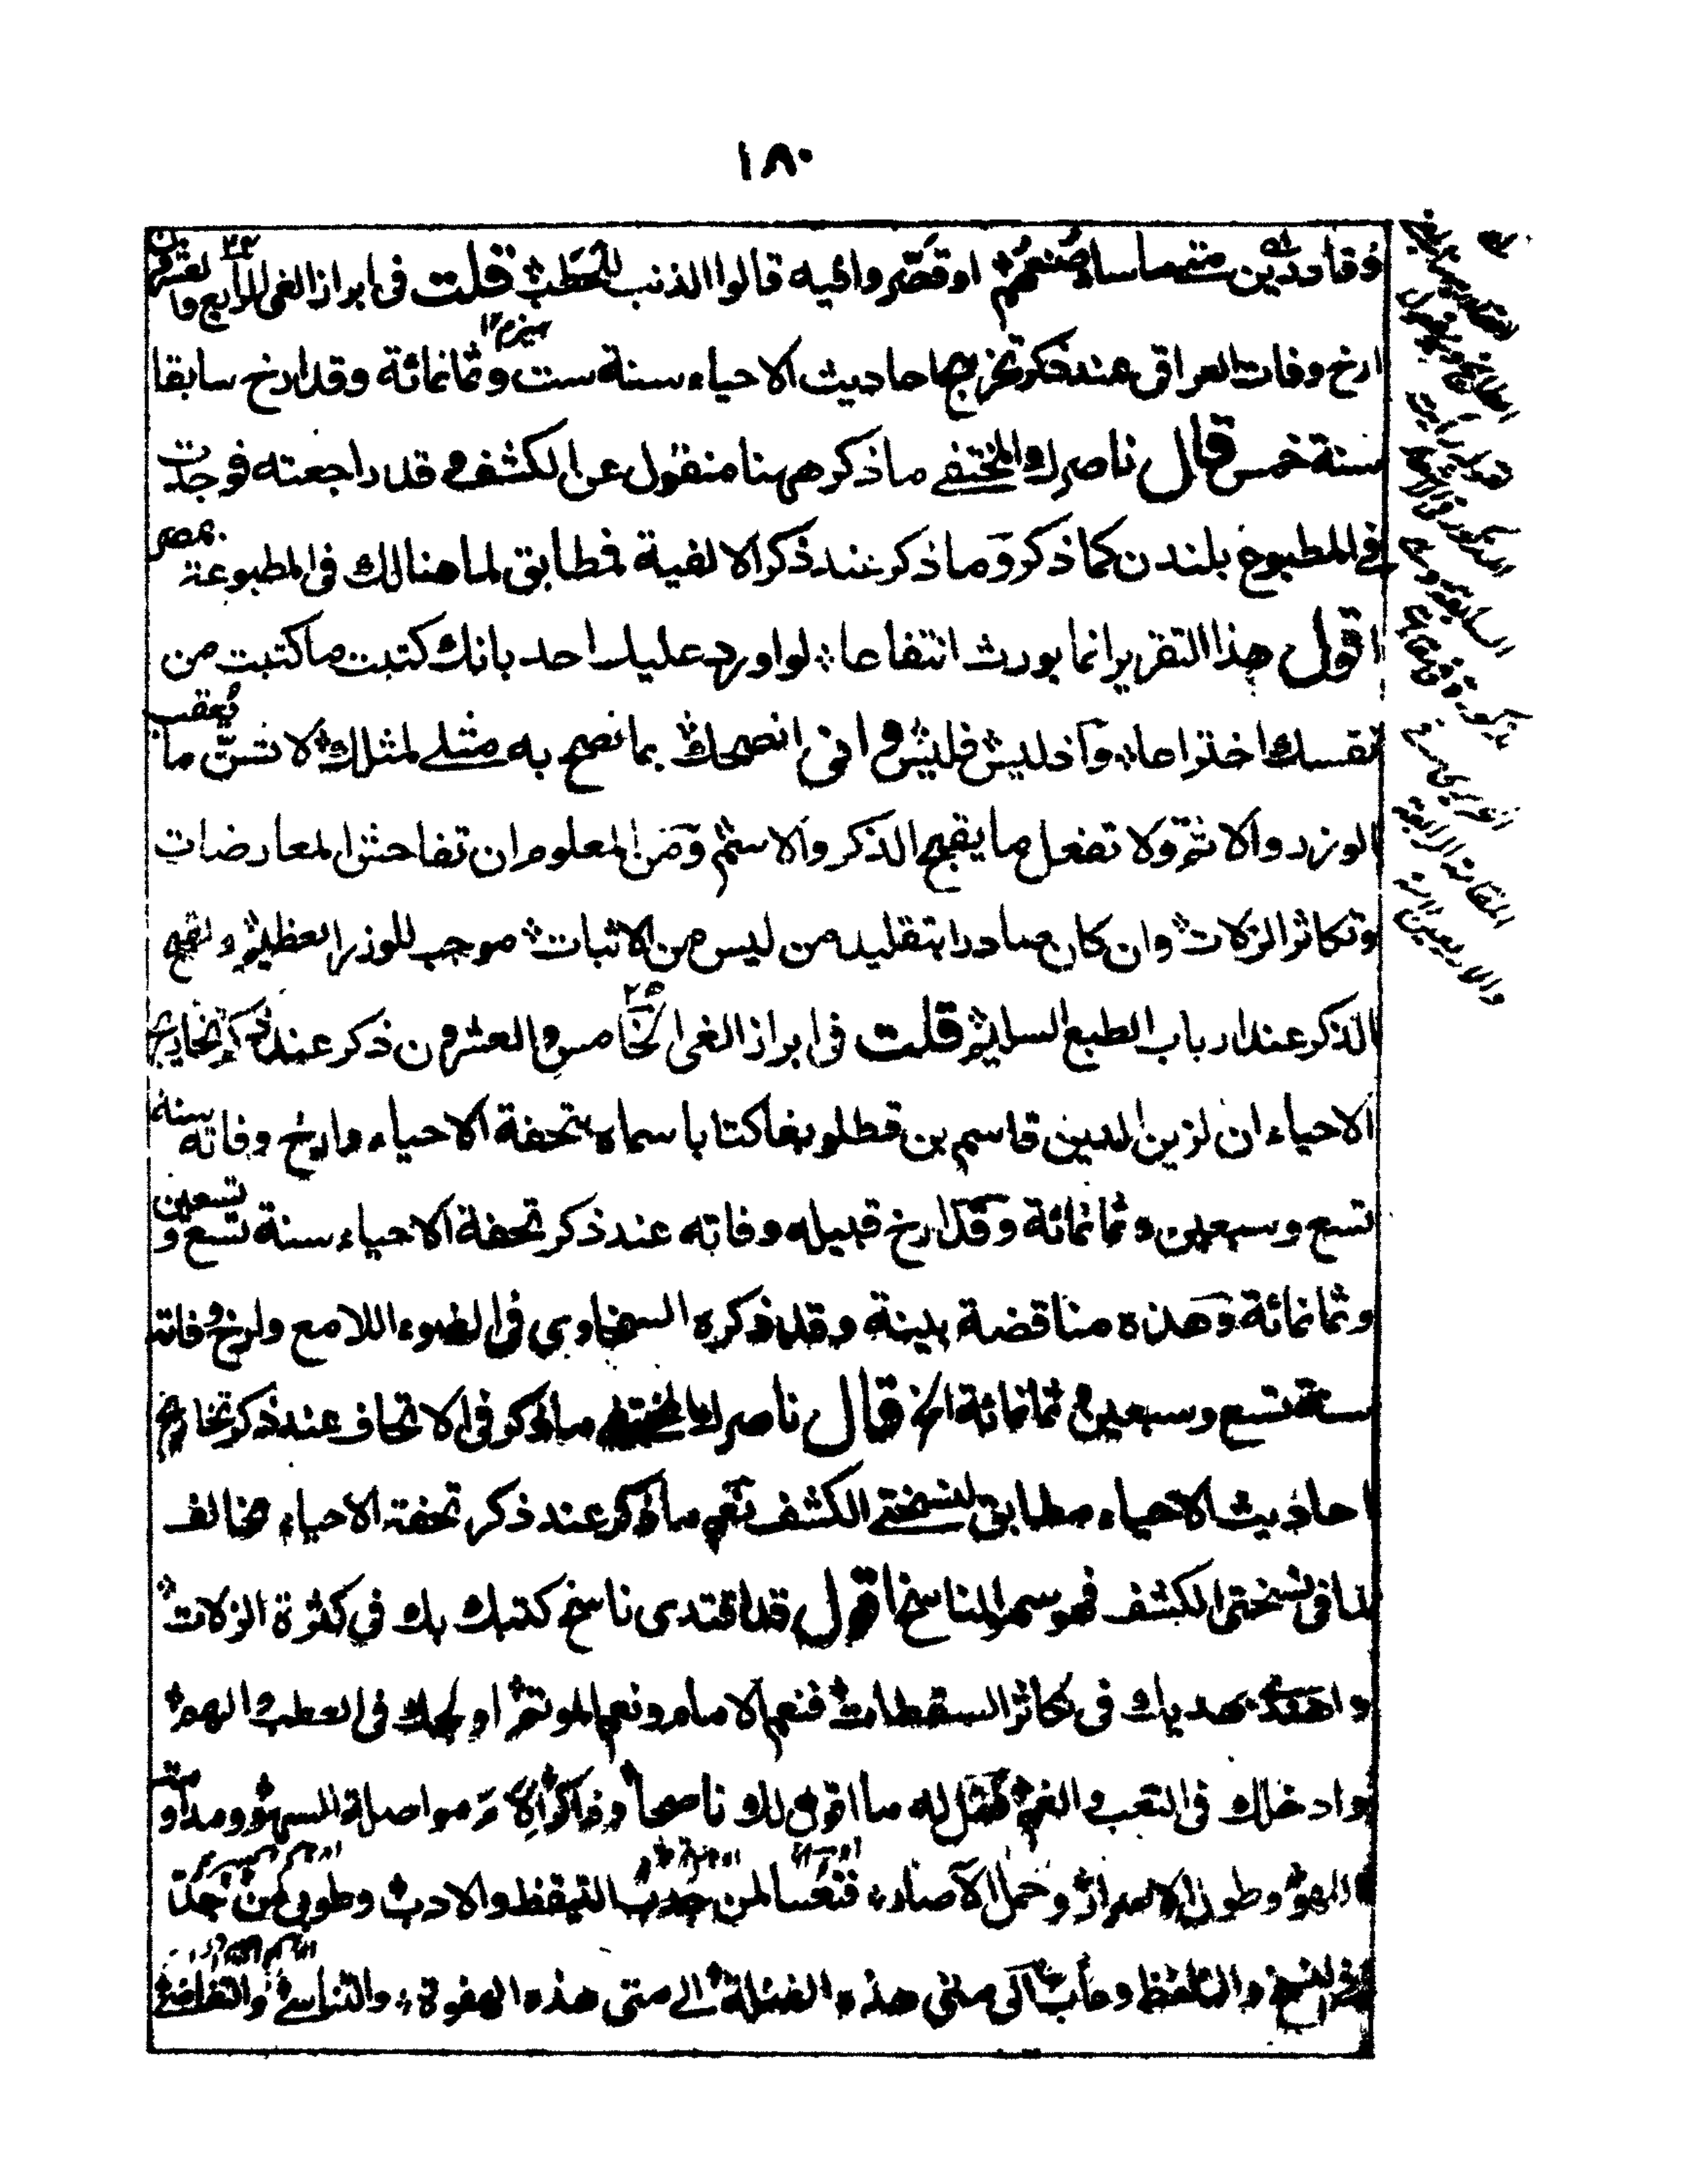 ١٨٠
وقاد دين متى ما ساء صنعهم او قصروا فيه قالوا الذنب للحطب قلت فى ابراز الغى الرابع والعشرون
ارخ وفات العراقى عند ذكر تخريجها حاديث الاحياء سنة ست وثمانمائة وقد ارخ سابقا
سنة خمس قال ناصرك المختفى ما ذكر ههنا منقول عن الكشف وقد راجعته فوجدت
فى المطبوع بلندن كما ذكر وما ذكر عند ذكر الالفية فمطابق لما هنالك فى المطبوعة بمصر
اقول هذا التقرير انما يورث انتفاعا لو اورد عليك احد بانك كتبت ما كتبت من
نفسك اختراعا واذ ليش فليش وانى انصحك بما نصح به مثلى لمثلك لا تسن ما يعقب
الوزر والاثم ولا تفعل ما يقبح الذكر والاسم ومن المعلوم ان تفاحش المعارضات
وتكاثر الزلات وان كان صادرا بتقليد من ليس من الاثبات موجب للوزر العظيم ولقبح
الذكر عند ارباب الطبع السليم قلت فى ابراز الغى الخامس والعشرون ذكر عند ذكر تخاريج
الاحياء ان لزين الدين قاسم بن قطلوبغا كتابا سماه بتحفة الاحياء وارخ وفاته سنة
تسع وسبعين وثمانمائة وقد ارخ قبيله وفاته عند ذكر تحفة الاحياء سنة تسع وتسعين
وثمانمائة وهذه مناقضة بينة وقد ذكره السخاوي فى الضوء اللامع وارخ وفاته
سنة تسع وسبعين وثمانمائة الخ قال ناصرك المختفى ما ذكر فى الاتحاف عند ذكر تخاريج
احاديث الاحياء مطابق لنسختى الكشف نعم ما ذكر عند ذكر تحفة الاحياء مخالف
لما فى نسختى الكشف فهو سهو الناسخ اقول قد اقتدى ناسخ كتبك بك في كثرة الزلات
واهتدى بهديك فى تكاثر السقطات فنعم الامام ونعم المؤتم اولجك فى العطب والهم
وادخلك فى التعب والغم فقل له ما اقول لك ناصحا وذاكرا الام مواصلة السهو ومداومة
اللهو وطول الاصرار وحمل الآصار فتعسا لمن جدب التيقظ والادب وطوبى لمن جد
فى النسخ والتلفظ ودأب الى متى هذه الغفلة الى متى هذه الهفوة والتناسى والتغاضى